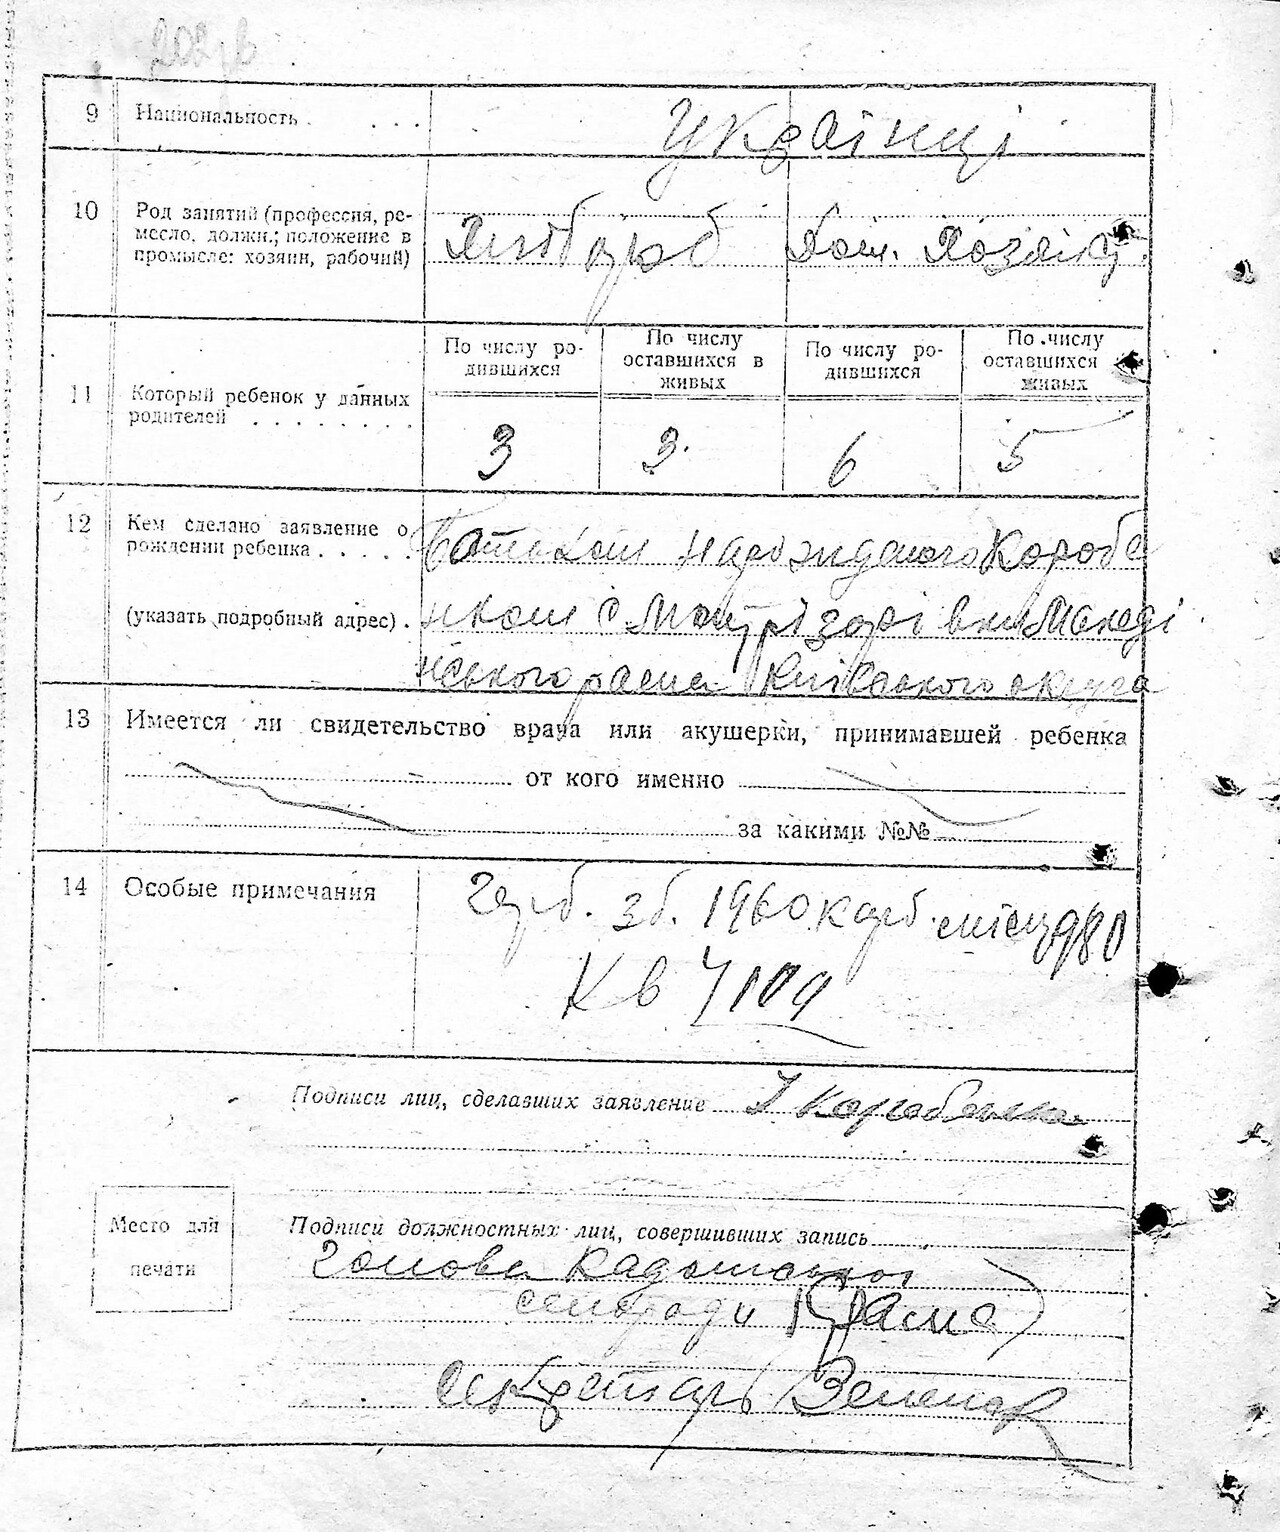 9 Национальность . . . . Українці
10 Род занятий (профессия, ре-
месло, должн.; положение в
промысле: хозяин, рабочий) Хлібороб Дом. Хозяйка
По числу ро-
дившихся
По числу
оставшихся в
живых
По числу ро-
дившихся
По числу
оставшихся
живых
11 Который ребенок у данных
родителей . . . . . . . .
3 3 6 5
12 Кем сделано заявление о
рождении ребенка . . . .
Батьком народженого Коробе
(указать подробный адрес) .
нком с
Київського округа
13 Имеется ли свидетельство врача или акушерки, принимавшей ребенка
от кого именно
за какими №№
14 Особые примечания
зб. 1960 карб. місяц 980
Кв
Подписи лиц, сделавших заявление
Место для
печати
Подписи должностных лиц, совершивших запись
Голова
сельради
Секретарь